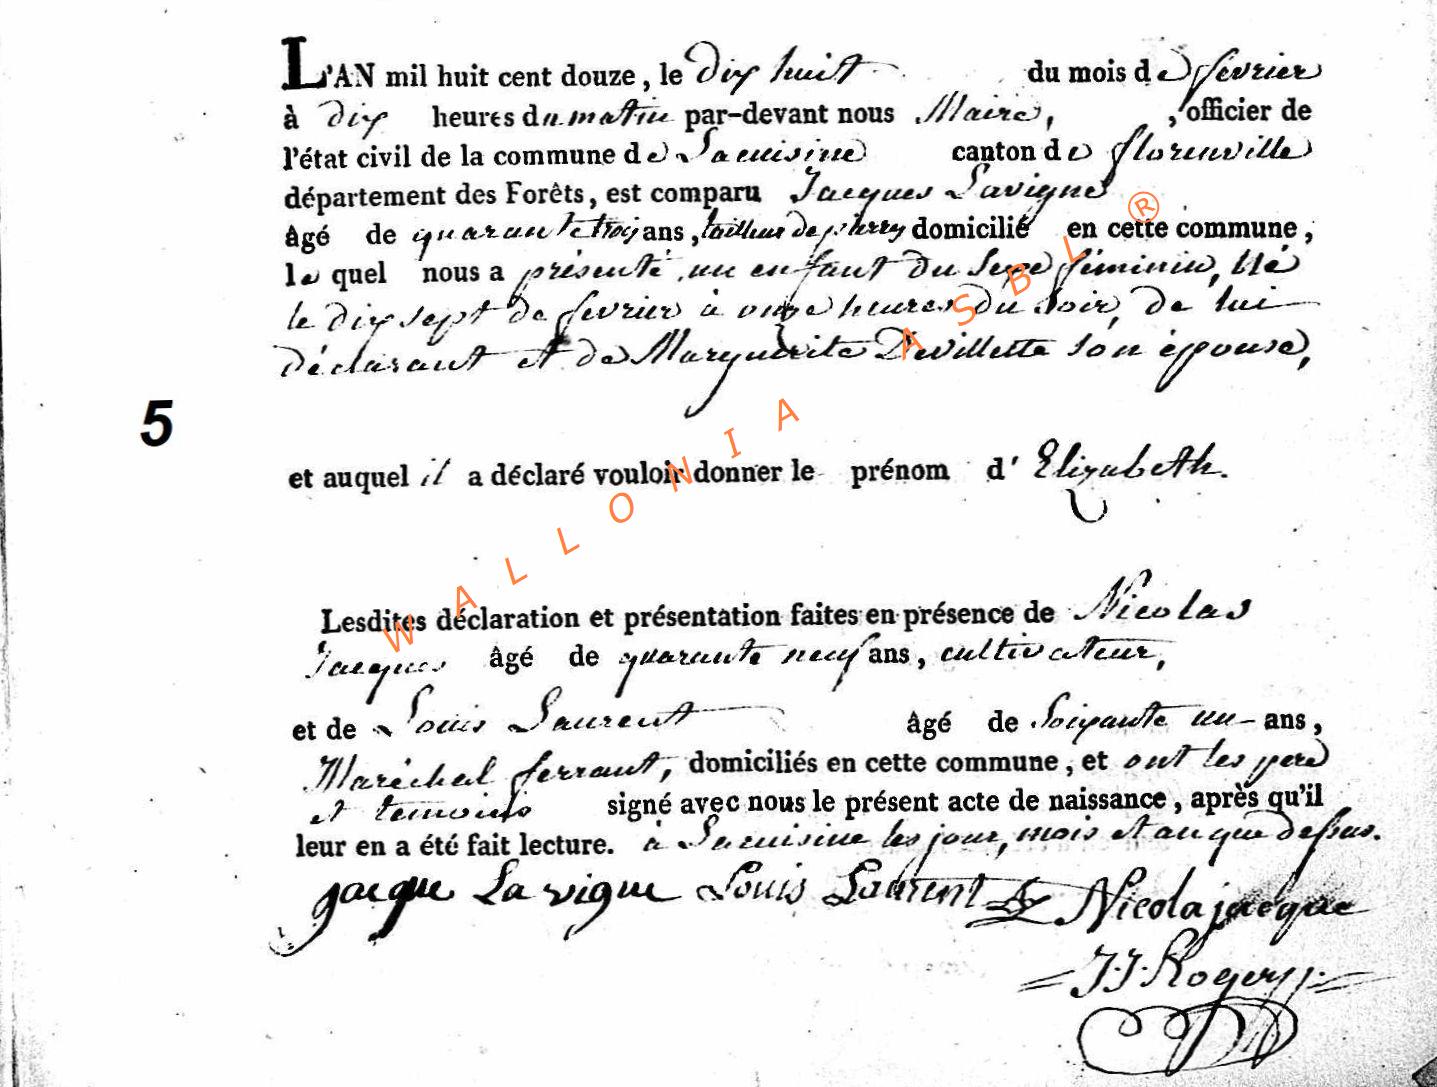 L'AN mil huit cent douze, le dix huit du mois de fevrier
à dix heures du matin par-devant nous Maire, , officier de
l'état civil de la commune de Lacuisine canton de florenville
département des Forêts, est comparu Jacques Lavigne
âgé de quarante trois ans, tailleur de pierres domicilié en cette commune,
le quel nous a présenté un enfant du sexe féminin, né
le dix sept de fevrier à onze heures du soir, de lui
déclarant et de Marguerite Devillette son épouse,
5
et auquel il a déclaré vouloir donner le prénom d' Elizabeth.
Lesdites déclaration et présentation faites en présence de Nicolas
Jacques âgé de quarante neuf ans, cultivateur,
et de Louis Laurent âgé de soixante un ans,
Maréchal ferrant, domiciliés en cette commune, et ont les pere
et temoins signé avec nous le présent acte de naissance, après qu'il
leur en a été fait lecture. à Lacuisine les jour, mois et an que dessus.
jacque Lavigne Louis Laurent Nicola jacque
J. J. Rogery
WALLONIA ASBL ®